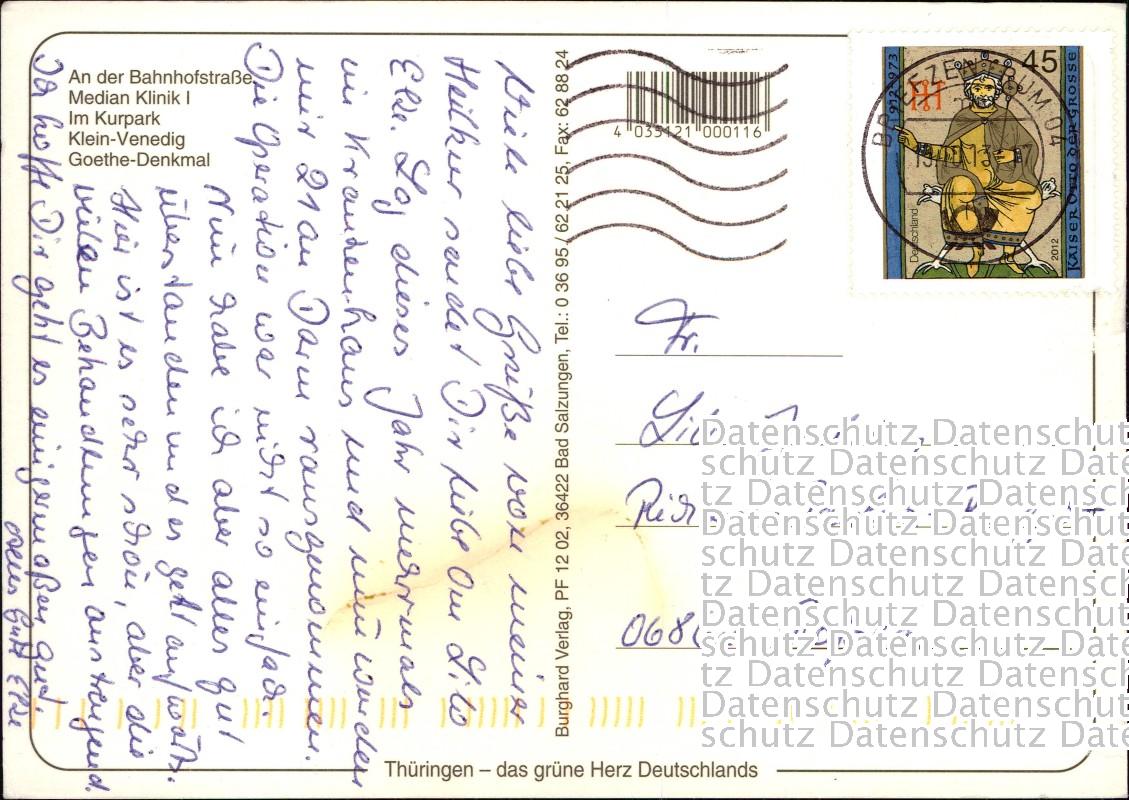 An der Bahnhofstraße
Median Klinik I
Im Kurpark
Klein-Venedig
Goethe-Denkmal
Viele liebe Grüße von meiner
Heilkur sendet Dir liebe
Elke. Lag dieses Jahr mehrmals
im Krankenhaus und nun wurden
mir 21 cm Darm rausgenommen.
Die Operation war nicht so einfach.
Nun habe ich aber alles gut
überstanden und es geht aufwärts.
Hier ist es sehr schön, aber die
vielen Behandlungen anstrengend.
Ich hoffe Dir geht es einigermaßen gut,
alles Gute Elke
Burghard Verlag, PF 12 02, 36422 Bad Salzungen, Tel.: 0 36 95 / 62 21 25, Fax: 62 88 24
4 035121 000116
BRIEFZENTRUM 04
13
45
912-973
Deutschland
2012
KAISER OTTO DER GROSSE
Fr.
068
Datenschutz Datenschut
schutz Datenschutz Date
tz Datenschutz Datensch
Datenschutz Datenschut
schutz Datenschutz Date
tz Datenschutz Datensch
Datenschutz Datenschut
schutz Datenschutz Date
tz Datenschutz Datensch
Datenschutz Datenschut
schutz Datenschutz Date
Thüringen – das grüne Herz Deutschlands